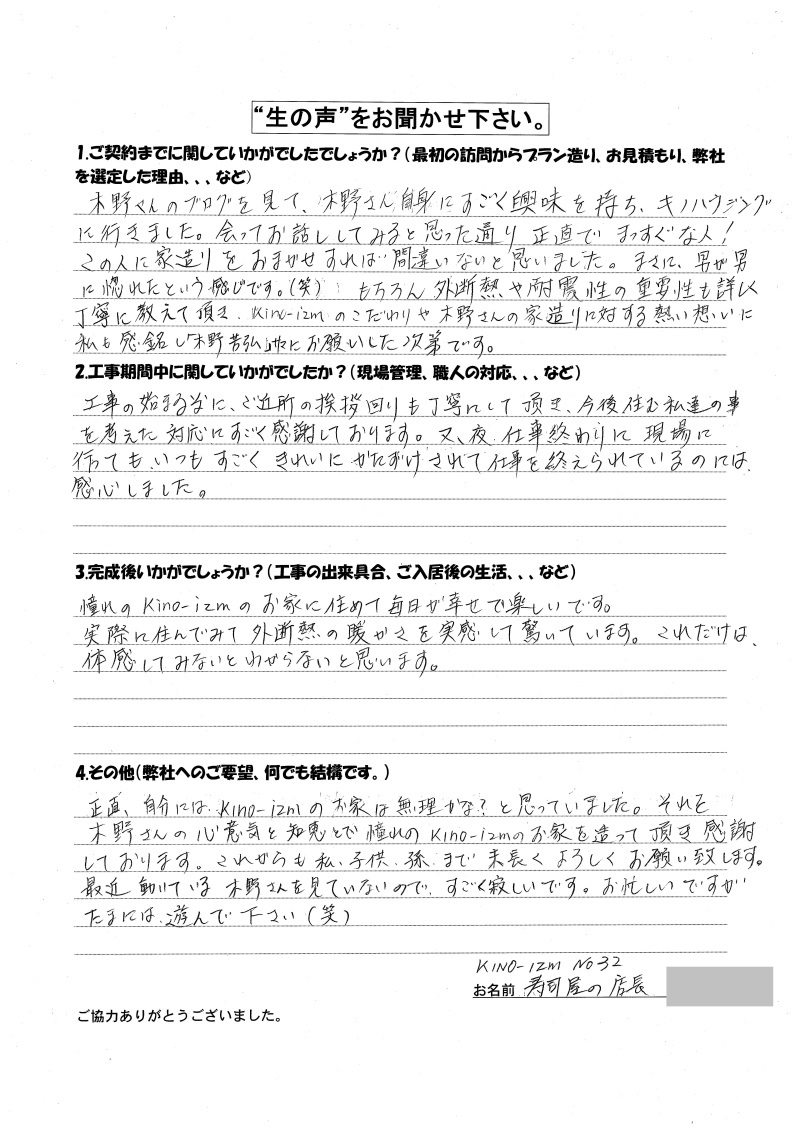 “生の声”をお聞かせ下さい。
1.ご契約までに関していかがでしたでしょうか？（最初の訪問からプラン造り、お見積もり、弊社
を選定した理由、、、など）
木野さんのブログを見て、木野さん自身にすごく興味を持ち、キノハウジング
に行きました。会ってお話ししてみると思った通り正直でまっすぐな人！
この人に家造りをおまかせすれば間違いないと思いました。まさに、男が男
に惚れたという感じです。（笑） もちろん外断熱や耐震性の重要性も詳しく
丁寧に教えて頂き、Kino-izmのこだわりや木野さんの家造りに対する熱い想いに
私も感銘し「木野 弘」 にお願いした次第です。
2.工事期間中に関していかがでしたか？（現場管理、職人の対応、、、など）
工事の始まる前に、ご近所の挨拶回りも丁寧にして頂き、今後住む私達の事
を考えた対応にすごく感謝しております。又、夜、仕事終わりに現場に
行っても、いつもすごくきれいにかたずけされて仕事を終えられているのには、
感心しました。
3.完成後いかがでしょうか？（工事の出来具合、ご入居後の生活、、、など）
憧れのKino-izmのお家に住めて毎日が幸せで楽しいです。
実際に住んでみて外断熱の暖かさを実感して驚いています。これだけは、
体感してみないとわからないと思います。
4.その他（弊社へのご要望、何でも結構です。）
正直、自分にはKino-izmのお家は無理かな？と思っていました。それを
木野さんの心意気と知恵とで憧れのKino-izmのお家を造って頂き感謝
しております。これからも私、子供、孫まで末長くよろしくお願い致します。
最近動いている木野さんを見ていないので、すごく寂しいです。お忙しいですが
たまには、遊んで下さい（笑）
KINO-IZM No32
お名前 寿司屋の店長
ご協力ありがとうございました。